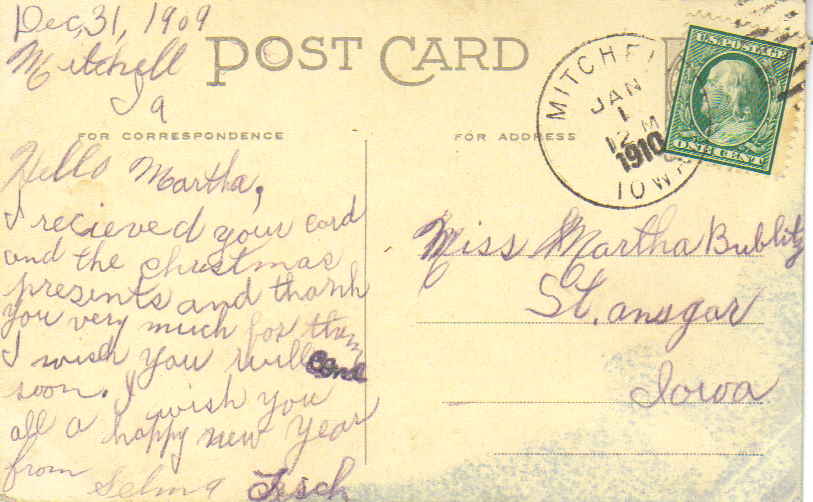 Dec, 31, 1909
Mitchell
Ia
POST CARD
FOR CORRESPONDENCE
FOR ADDRESS
Hello Martha,
I recieved your card
and the christmas
presents and thank
you very much for them
I wish you will come
soon. I wish you
all a happy new year
from Selma
MITCHELL
JAN
1
12 M
1910
IOWA
U.S. POSTAGE
ONE CENT
Miss Martha Bublitz
St. ansgar
Iowa